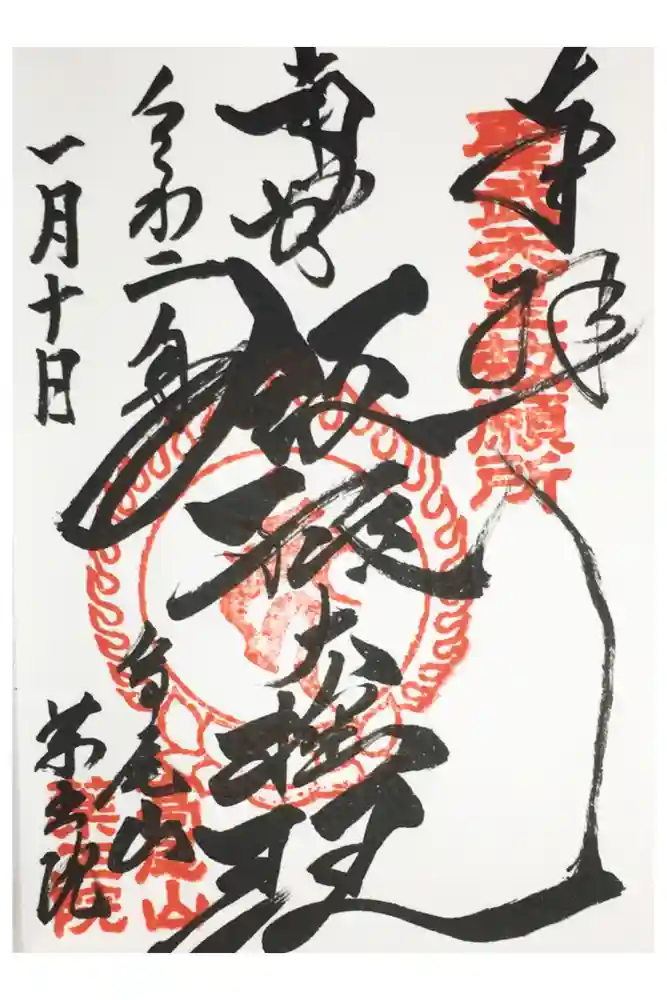 奉拝
聖武天皇勅願所
南無
飯縄大権現
令和二年
一月十日
高尾山
薬王院
高尾山
薬王院